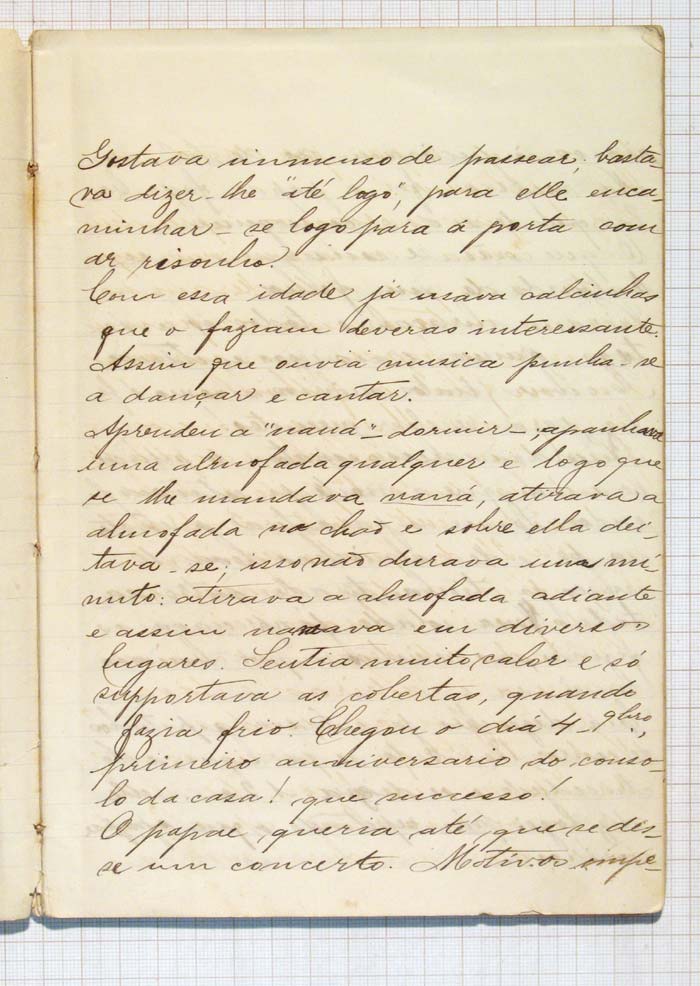 Gostava immenso de passear, basta-
va dizer-lhe "até logo", para elle enca-
minhar-se logo para á porta com
ar risonho.
Com essa idade já usava calcinhas
que o faziam deveras interessante.
Assim que ouvia musica punha-se
a dançar e cantar.
Aprendeu a "naná" - dormir -; apanhava
uma almofada qualquer e logo que
se lhe mandava naná, atirava a
almofada no chaõ e sobre ella dei-
tava-se; isso naõ durava um mi-
nuto: atirava a almofada adiante
e assim nanava em diversos
lugares. Sentia muito calor e só
supportava as cobertas, quando
fazia frio. Chegou o diá 4-9bro,
primeiro anniversario do conso-
lo da casa! que successo!
O papae queria até que se dés-
se um concerto. Motivos impe-